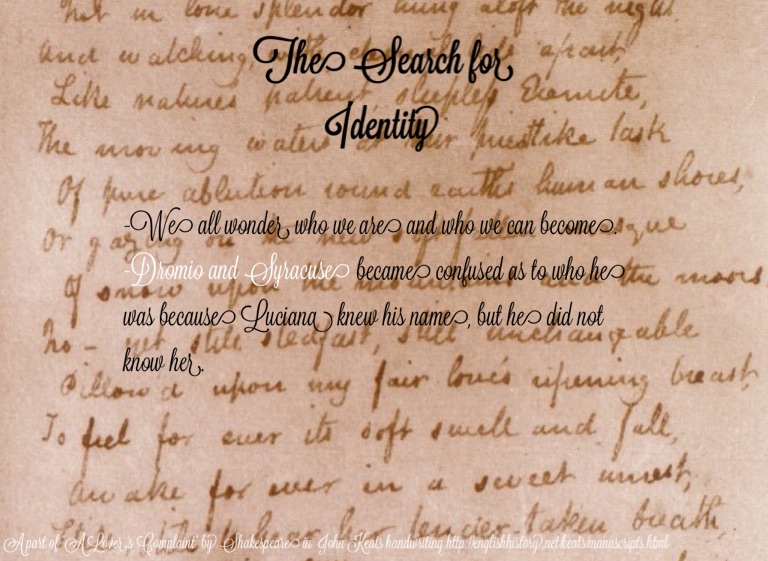 Not in lone splendor hung aloft the night
The Search for
and watching, apart,
Like natures patient sleepless Eremite,
Identity
The moving waters at their priestlike task
Of pure ablution round earths human shores,
-We all wonder who we are and who we can become.
Or gazing on the new soft fallen
-Dromio and Syracuse became confused as to who he
Of snow upon the mountains and the moors
was because Luciana knew his name, but he did not
No – yet still stedfast, still unchangeable
know her.
Pillow'd upon my fair love's ripening breast,
To feel for ever its soft swell and fall,
Awake for ever in a sweet unrest,
to hear her tender-taken breath,
A part of "A Lover's Complaint" by Shakespeare in John Keats handwriting http://englishhistory.net/keats/manuscripts.html